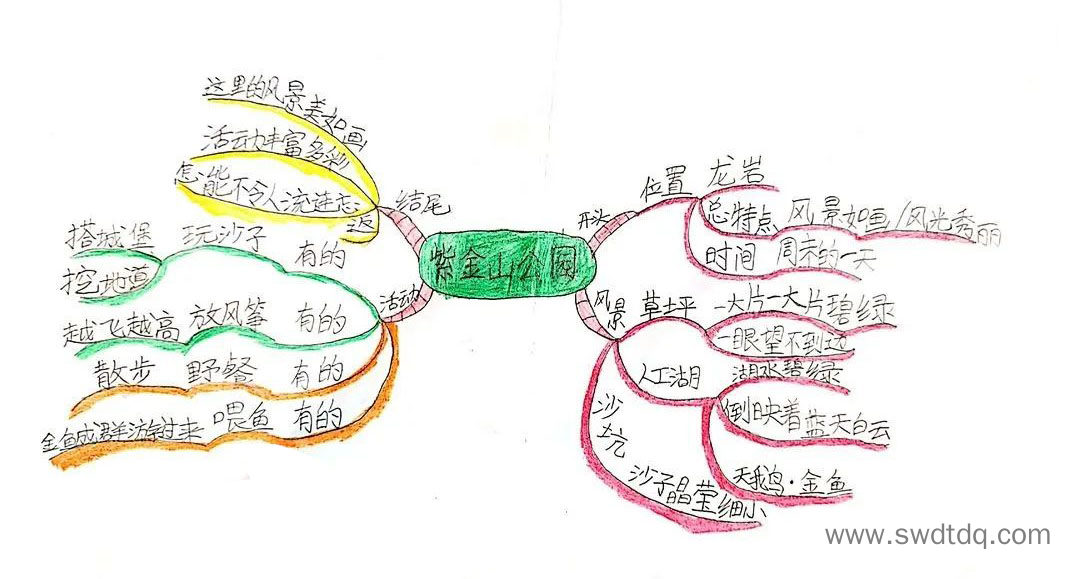 紫金山公园
开头
位置 龙岩
总特点 风景如画/风光秀丽
时间 周末的一天
风景
草坪 一大片一大片碧绿
一眼望不到边
人工湖 湖水碧绿
倒映着蓝天白云
天鹅·金鱼
沙坑
沙子晶莹细小
活动
有的 玩沙子 搭城堡
挖地道
有的 放风筝 越飞越高
有的 野餐 散步
有的 喂鱼 金鱼成群游过来
结尾
这里的风景美如画
活动丰富多彩
怎能不令人流连忘
返
www.swdtdq.com